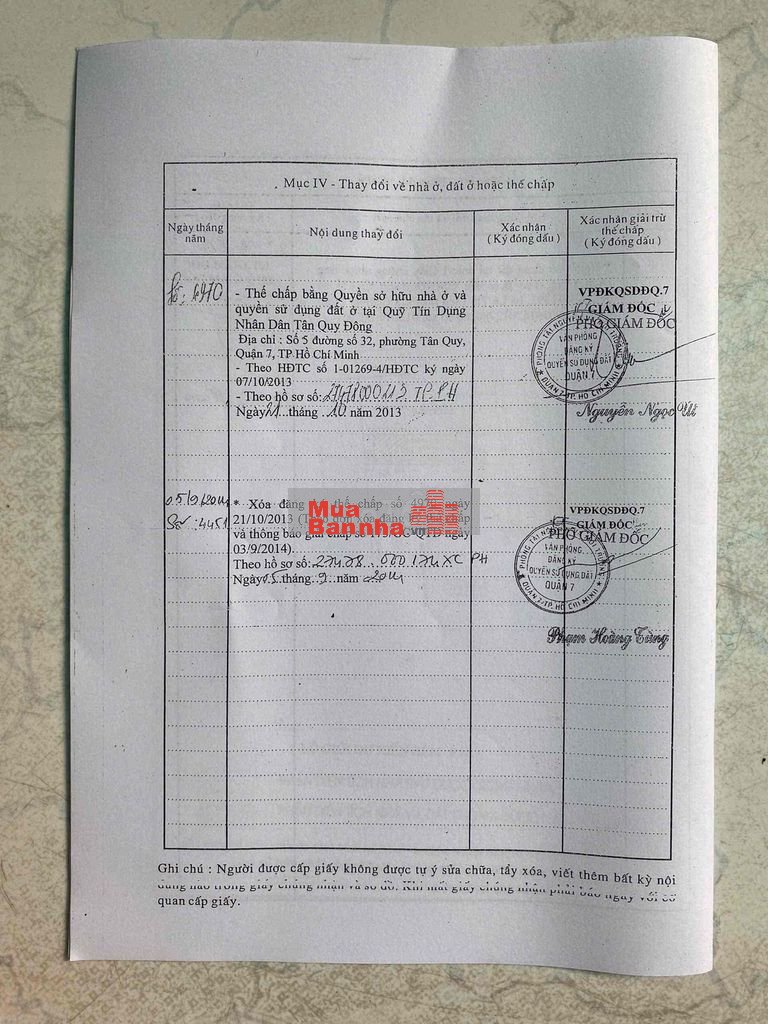 Mục IV - Thay đổi về nhà ở, đất ở hoặc thế chấp
Ngày tháng năm
Nội dung thay đổi
Xác nhận
( Ký đóng dấu )
Xác nhận giải trừ
thế chấp
( Ký đóng dấu )
- Thế chấp bằng Quyền sở hữu nhà ở và
quyền sử dụng đất ở tại Quỹ Tín Dụng
Nhân Dân Tân Quy Đông
Địa chỉ : Số 5 đường số 32, phường Tân Quy,
Quận 7, TP Hồ Chí Minh
- Theo HĐTC số 1-01269-4/HĐTC ký ngày
07/10/2013
- Theo hồ sơ số:
Ngày 21 tháng 10 năm 2013
VPĐKQSDĐQ.7
GIÁM ĐỐC
PHÓ GIÁM ĐỐC
VĂN PHÒNG
ĐĂNG KÝ
QUYỀN SỬ DỤNG ĐẤT
QUẬN 7
QUẬN 7-TP. HỒ CHÍ MINH
Nguyễn Ngọc
* Xóa đăng thế chấp số ngày
21/10/2013
và thông báo giải chấp số ngày
03/9/2014).
Theo hồ sơ số:
Ngày 05 tháng 9 năm 2014
Mua
Bannha
VPĐKQSDĐQ.7
GIÁM ĐỐC
PHÓ GIÁM ĐỐC
VĂN PHÒNG
ĐĂNG KÝ
QUYỀN SỬ DỤNG ĐẤT
QUẬN 7
QUẬN 7-TP. HỒ CHÍ MINH
Phạm Hoàng Tùng
Ghi chú : Người được cấp giấy không được tự ý sửa chữa, tẩy xóa, viết thêm bất kỳ nội
dung nào trong giấy chứng nhận và sơ đồ. Khi mất giấy chứng nhận phải báo ngay với cơ
quan cấp giấy.